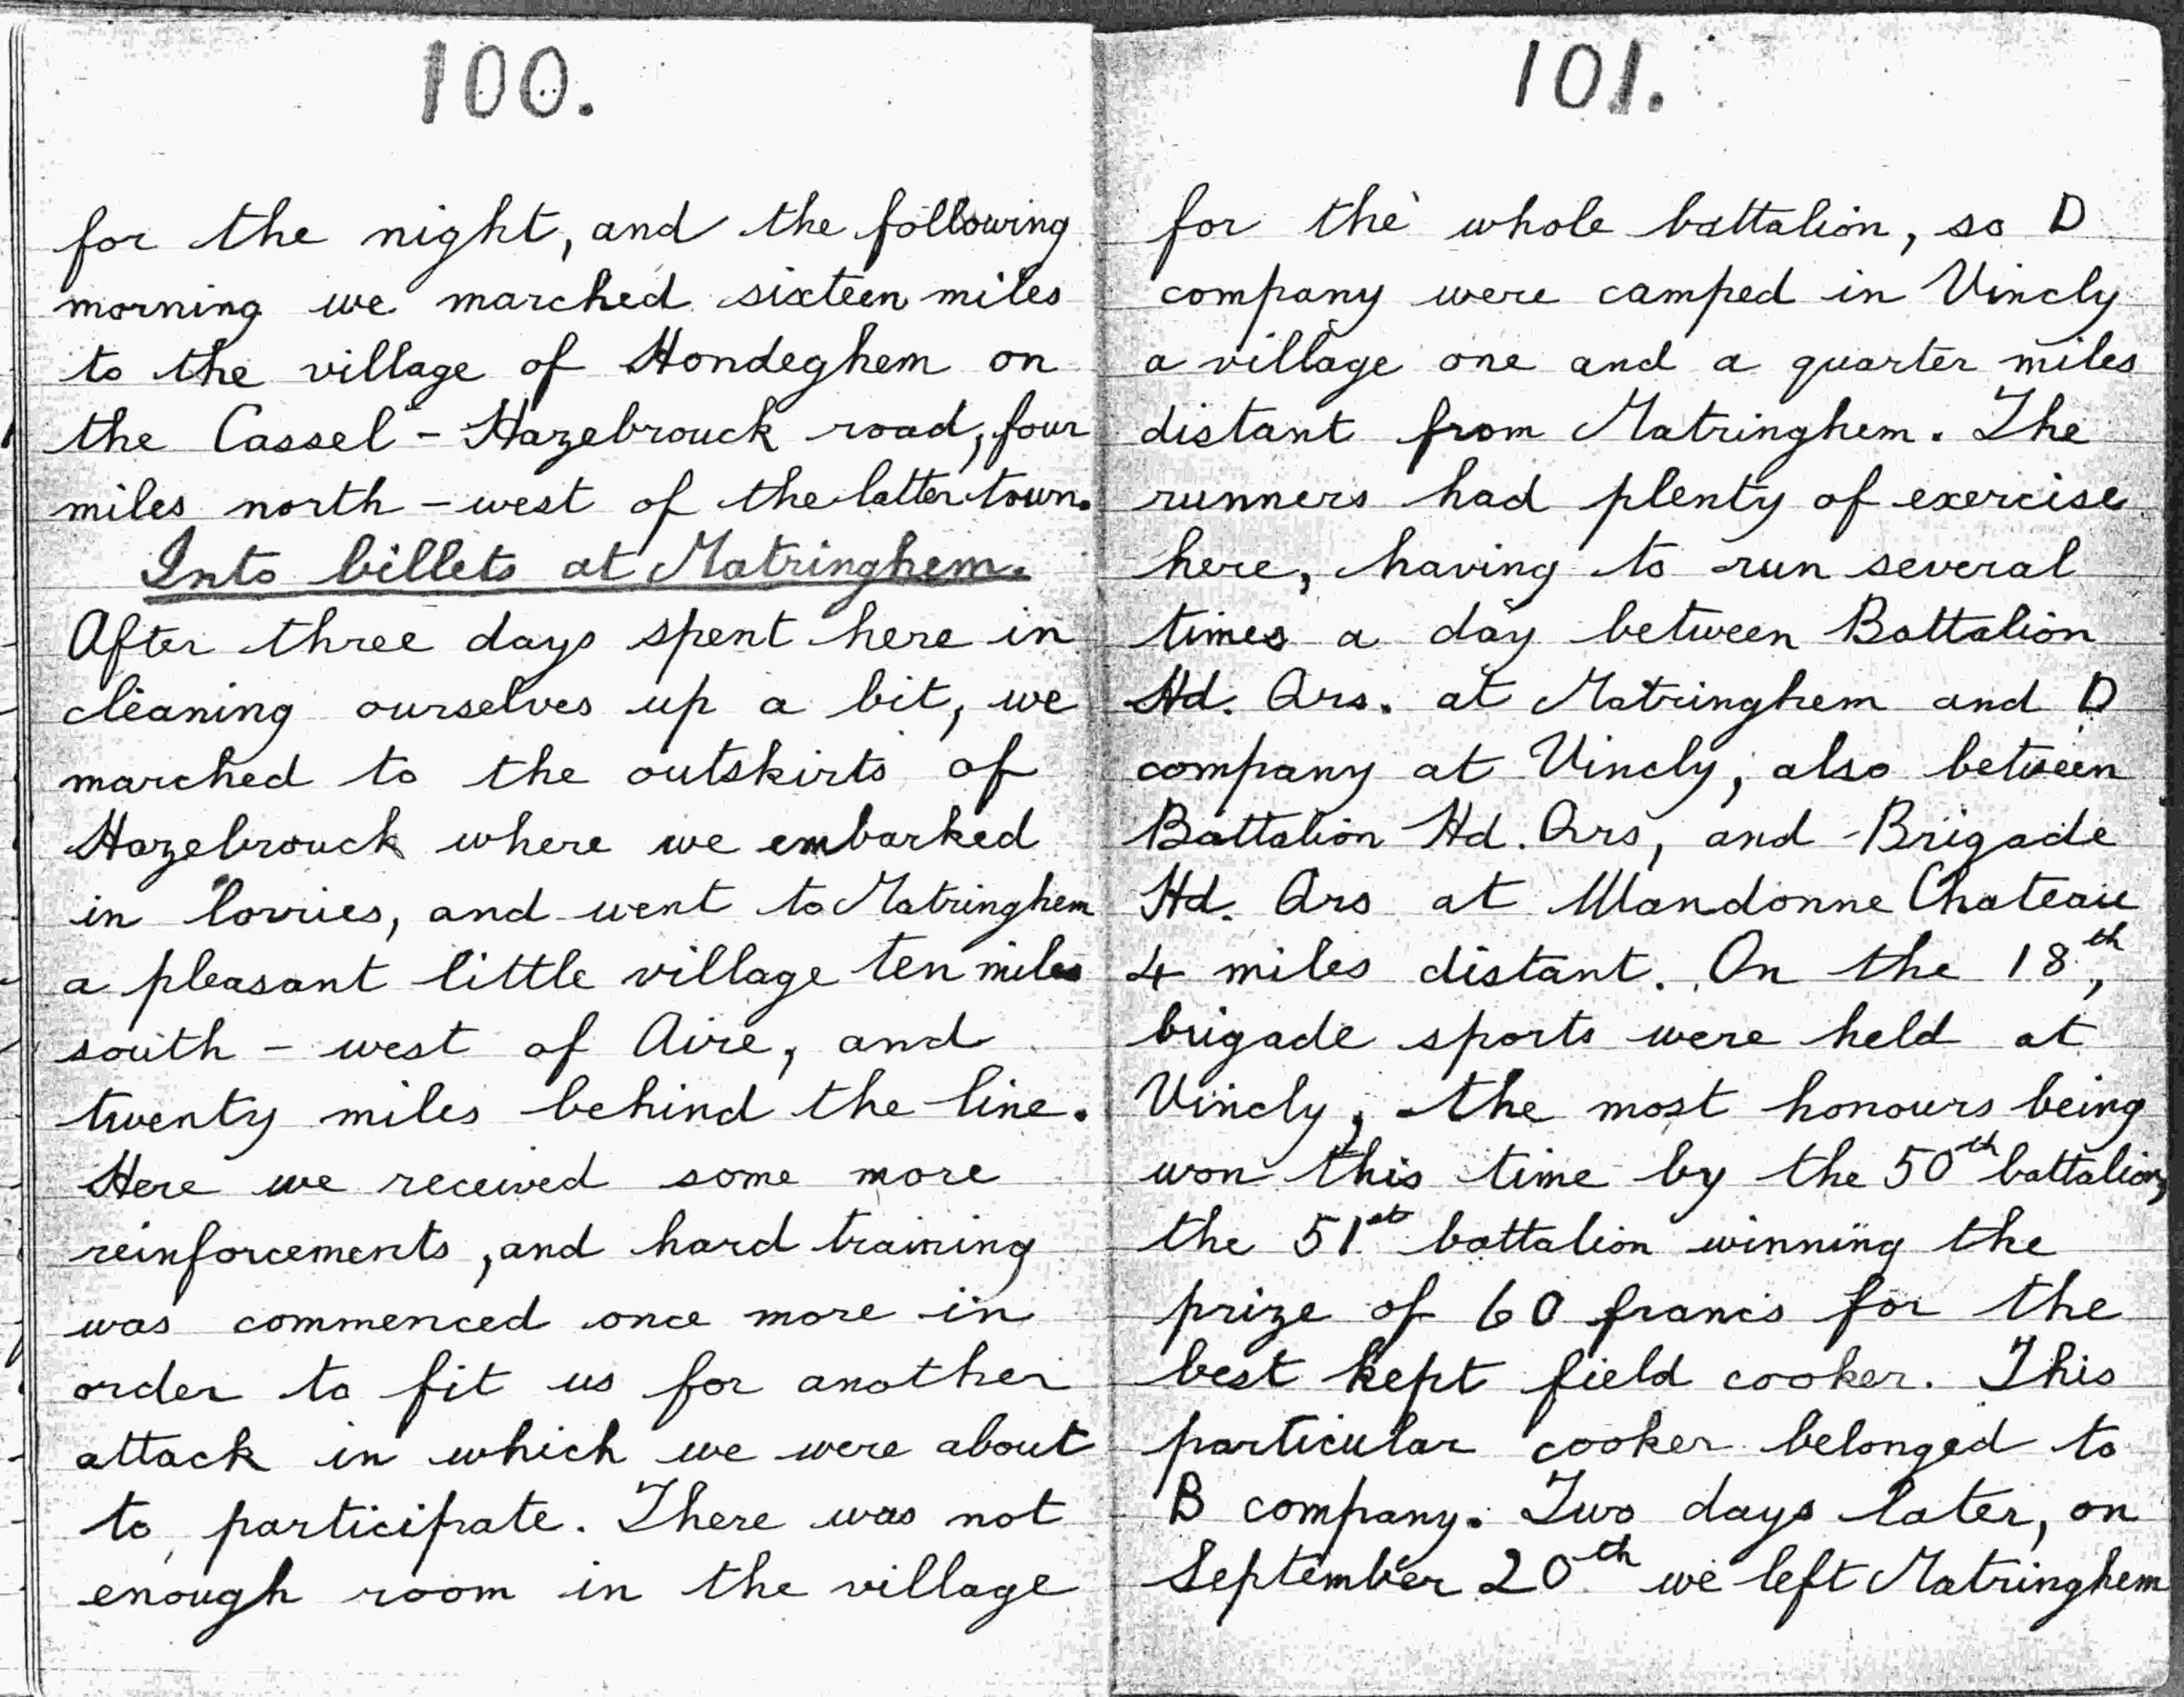 100.
for the night, and the following
morning we marched sixteen miles
to the village of Hondeghem on
the Cassel - Hazebrouck road, four
miles north - west of the latter town.
Into billets at Matringhem.
After three days spent here in
cleaning ourselves up a bit, we
marched to the outskirts of
Hazebrouck where we embarked
in lorries, and went to Matringhem
a pleasant little village ten miles
south - west of Aire, and
twenty miles behind the line.
Here we received some more
reinforcements, and hard training
was commenced once more in
order to fit us for another
attack in which we were about
to participate. There was not
enough room in the village
101.
for the whole battalion, so D
company were camped in Vincly
a village one and a quarter miles
distant from Matringhem. The
runners had plenty of exercise
here, having to run several
times a day between Battalion
Hd. Qrs. at Matringhem and D
company at Vincly, also between
Battalion Hd. Qrs, and Brigade
Hd. Qrs at Wandonne Chateau
4 miles distant. On the 18th,
brigade sports were held at
Vincly, the most honours being
won this time by the 50th battalion,
the 51st battalion winning the
prize of 60 francs for the
best kept field cooker. This
particular cooker belonged to
B company. Two days later, on
September 20th we left Matringhem